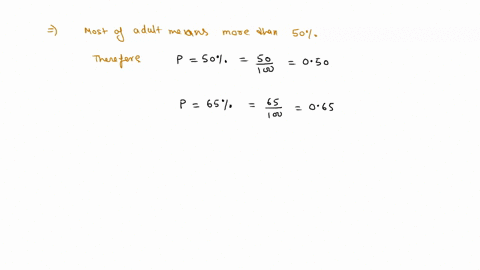 ⇒) Most of adult means more than 50%.
Therefore P = 50% = 50/100 = 0.50
P = 65% = 65/100 = 0.65